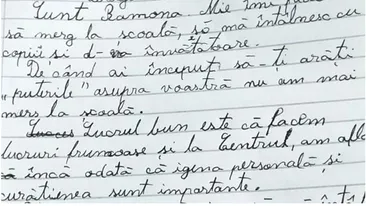 Sunt Ramona. Mie îmi
să merg la școală, să mă întâlnesc cu
copiii și d-na învățătoare.
De când ai început să-ți arăți
„puterile” asupra voastră nu am mai
mers la școală.
Lucrul bun este că facem
lucruri frumoase și la Centrul, am
încă odată că igiena personală și
curățienea sunt importante.